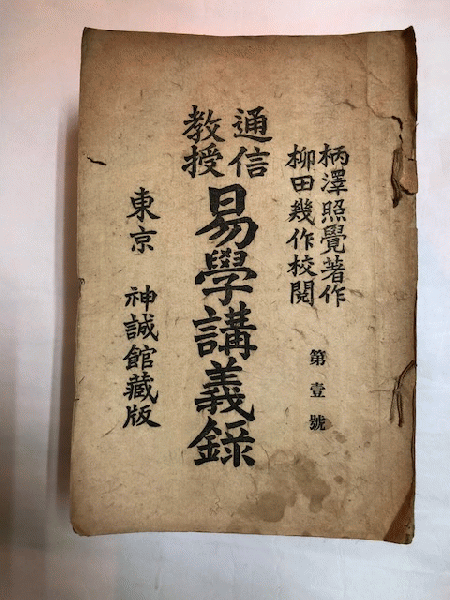 柄澤照覺著作
柳田幾作校閲
第壹號
通信
教授
易學講義錄
東京 神誠館藏版